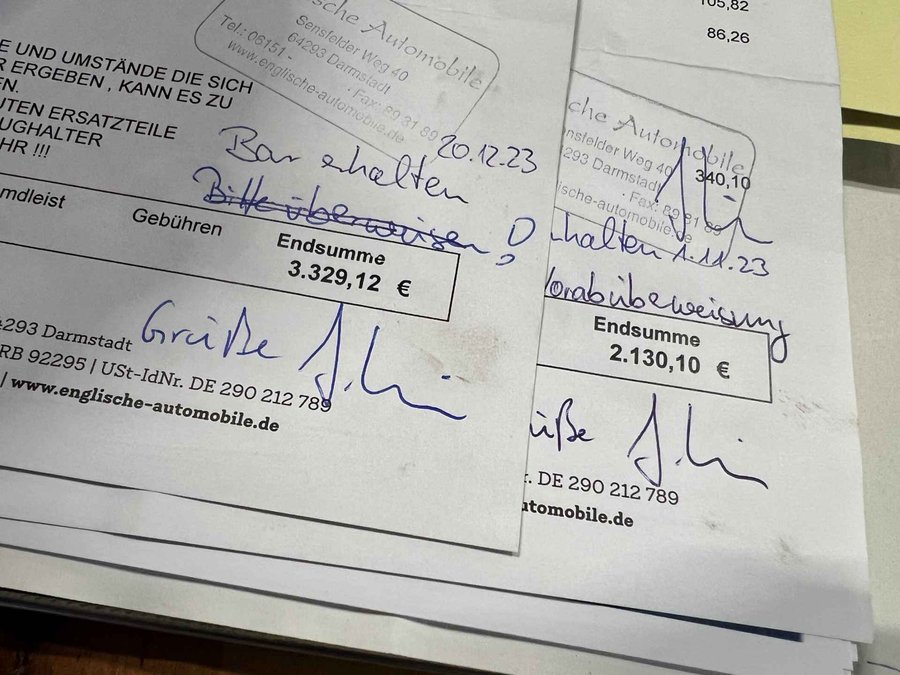 E UND UMSTÄNDE DIE SICH
R ERGEBEN , KANN ES ZU
EN.
UTEN ERSATZTEILE
UGHALTER
HR !!!
sche Automobile
Sensfelder Weg 40
64293 Darmstadt
Tel.: 06151 - · Fax: 89 31 89
www.englische-automobile.de
20.12.23
Bar erhalten
Bitte überweisen !
mdleist Gebühren Endsumme
3.329,12 €
Grüße
4293 Darmstadt
RB 92295 | USt-IdNr. DE 290 212 789
| www.englische-automobile.de
105,82
86,26
340,10
sche Automobile
ensfelder Weg 40
293 Darmstadt
· Fax: 89 31 89
ische-automobile.de
rhalten 1.11.23
Vorabüberweisung
Endsumme
2.130,10 €
üße
r. DE 290 212 789
utomobile.de